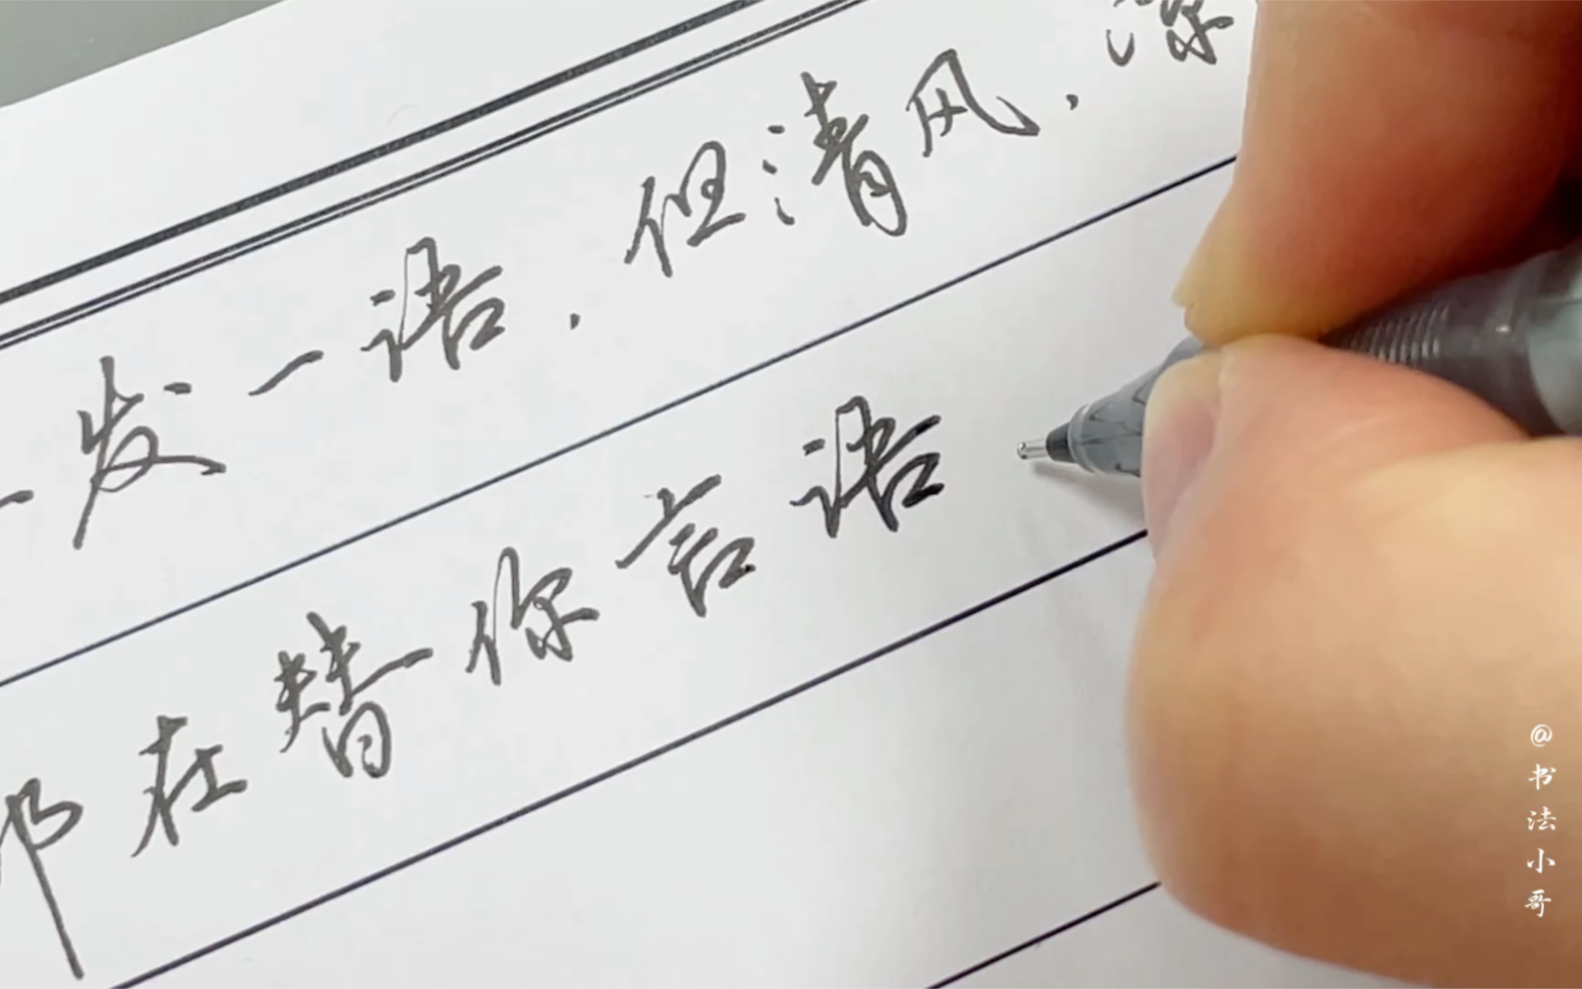 发一语，但清风，
在替你言语
@书法小哥